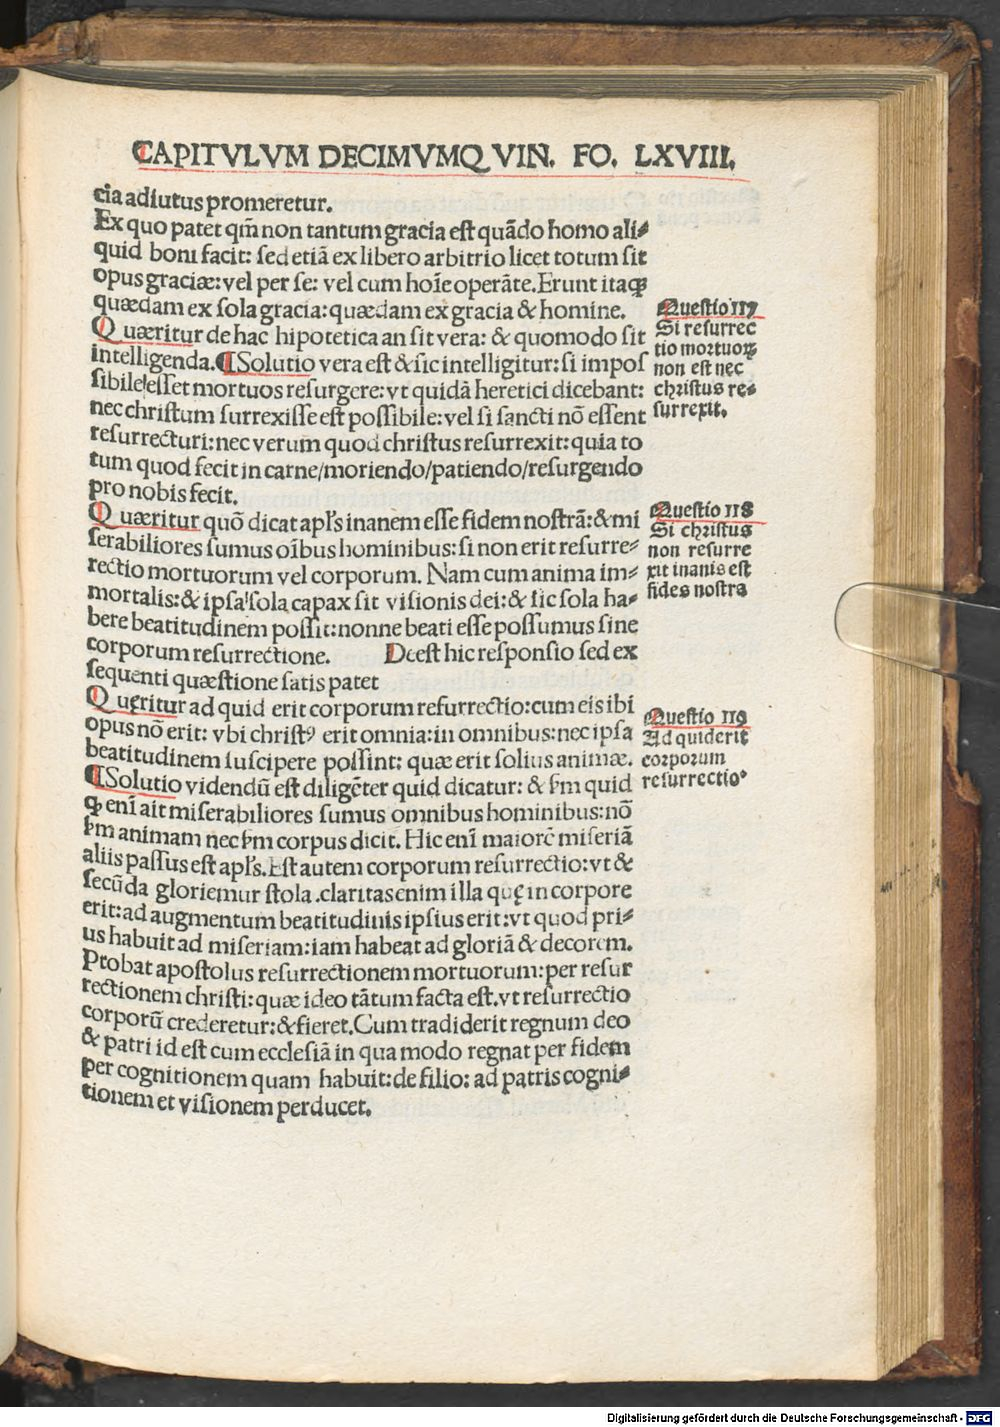 CAPITVLVM DECIMVMQVIN. FO. LXVIII.
cia adiutus promeretur.
Ex quo patet qm̄ non tantum gracia est quādo homo ali⸗
quid boni facit: sed etiā ex libero arbitrio licet totum sit
opus graciæ: vel per se: vel cum hoīe operāte. Erunt itaqꝫ
quædam ex sola gracia: quædam ex gracia & homine.
Quæritur de hac hipotetica an sit vera: & quomodo sit
intelligenda. ¶Solutio vera est & sic intelligitur: si impos
sibile esset mortuos resurgere: vt quidā heretici dicebant:
nec christum surrexisse est possibile: vel si sancti nō essent
resurrecturi: nec verum quod christus resurrexit: quia to
tum quod fecit in carne/moriendo/patiendo/resurgendo
pro nobis fecit.
Quæritur quō dicat apl's inanem esse fidem nostrā: & mi
serabiliores sumus oībus hominibus: si non erit resurre⸗
rectio mortuorum vel corporum. Nam cum anima im⸗
mortalis: & ipsa sola capax sit visionis dei: & sic sola ha⸗
bere beatitudinem possit: nonne beati esse possumus sine
corporum resurrectione. Deest hic responsio sed ex
sequenti quæstione satis patet
Quęritur ad quid erit corporum resurrectio: cum eis ibi
opus nō erit: vbi christꝰ erit omnia: in omnibus: nec ipsa
beatitudinem suscipere possint: quæ erit solius animæ.
¶Solutio videndū est diligēter quid dicatur: & ẜm quid
ꝙ enī ait miserabiliores sumus omnibus hominibus: nō
ẜm animam nec ẜm corpus dicit. Hic enī maiorē miseriā
aliis passus est apl's. Est autem corporum resurrectio: vt &
secūda gloriemur stola. claritas enim illa quę in corpore
erit: ad augmentum beatitudinis ipsius erit: vt quod pri⸗
us habuit ad miseriam: iam habeat ad gloriā & decorem.
Probat apostolus resurrectionem mortuorum: per resur
rectionem christi: quæ ideo tātum facta est. vt resurrectio
corporū crederetur: & fieret. Cum tradiderit regnum deo
& patri id est cum ecclesiā in qua modo regnat per fidem
per cognitionem quam habuit: de filio: ad patris cogni⸗
tionem et visionem perducet.
Questio 117
Si resurrec
tio mortuoꝝ
non est nec
christus re⸗
surrexit.
Questio 118
Si christus
non resurre
xit inanis est
fides nostra
Questio 119
Ad quid erit
corporum
resurrectio
Digitalisierung gefördert durch die Deutsche Forschungsgemeinschaft - DFG